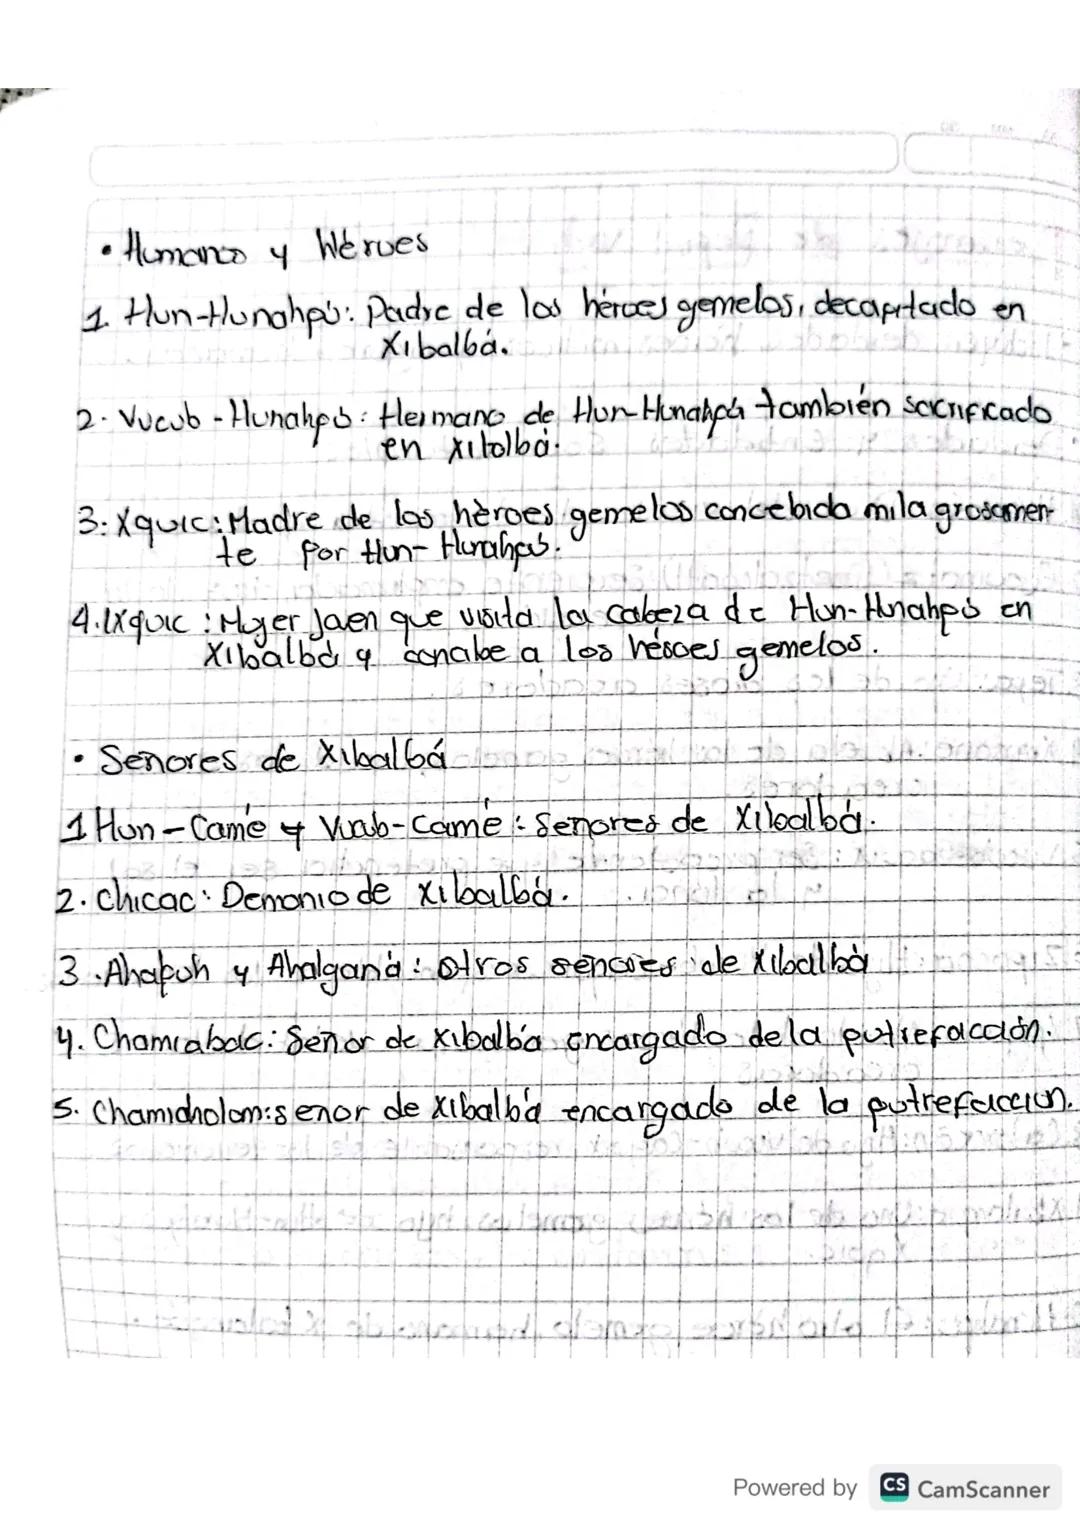 • Humanos y Héroes
1. Hun-Hunahpú: Padre de los héroes gemelos, decapitado en
Xibalbá.
2. Vucub-Hunahpú: Hermano de Hun-Hunahpú también sacrificado
en Xibalbá.
3. Xquic: Madre de los hèroes gemelos concebida milagrosamen-
te por Hun-Hunahpú.
4. IXquic: Mujer Joven que visita la cabeza de Hun-Hunahpú en
Xibalbá y concibe a los héroes gemelos.
• Señores de Xibalbá
1 Hun-Camé y Vucub-Camé: Señores de Xibalbá.
2. Chicac: Demonio de Xibalbá.
3. Ahapuh y Ahalganá: Otros señores de Xibalbá
4. Chamiabac: Señor de Xibalbá encargado de la putrefacción.
5. Chamiaholom: senor de Xibalbá encargado de la putrefaccion.
Powered by CS CamScanner